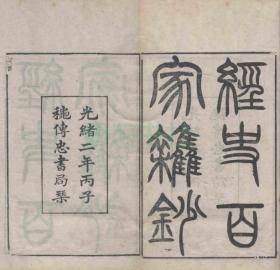 經史百
家雜鈔
光緒二年丙子
穐傳忠書局栞